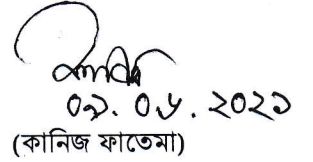 ০৯. ০৬. ২০২১
(কানিজ ফাতেমা)